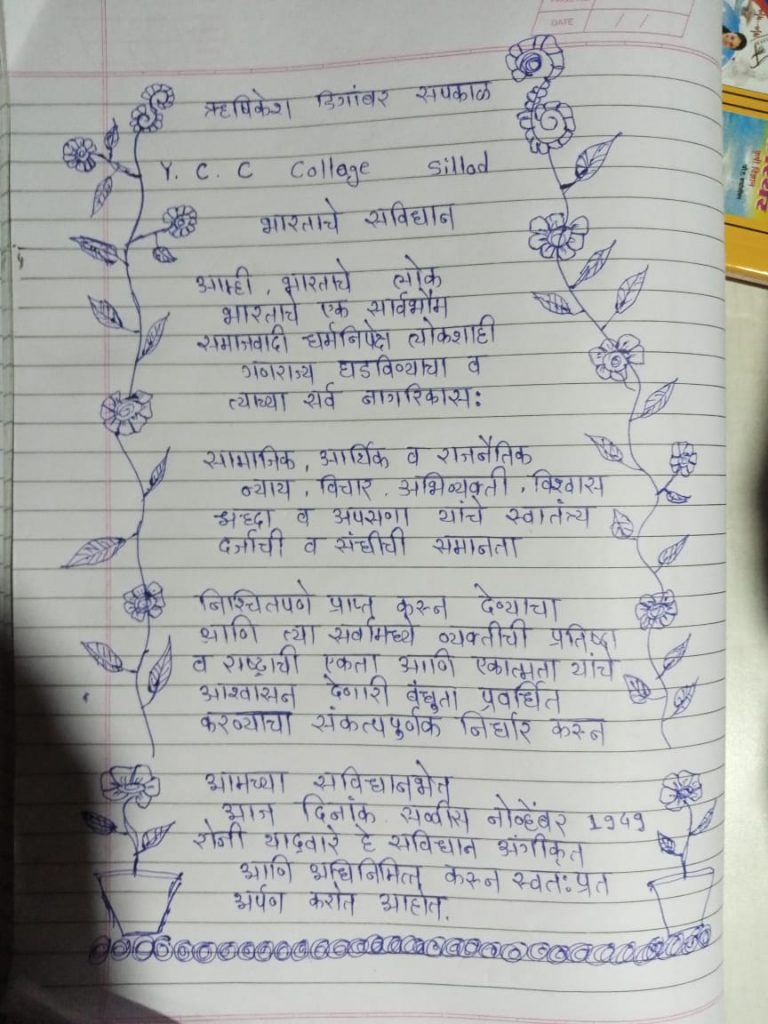 DATE / /
ऋषिकेश डिगांबर सपकाळ
Y. C. C Collage Sillod
भारताचे सविधान
आम्ही, भारताचे लोक
भारताचे एक सार्वभौम
समाजवादी धर्मनिपेक्ष लोकशाही
गणराज्य घडविण्याचा व
त्याच्या सर्व नागरिकास:
सामाजिक, आर्थिक व राजनैतिक
न्याय, विचार, अभिव्यक्ती, विश्वास
श्रध्दा व अपसणा यांचे स्वातंत्र्य
दर्जाची व संधीची समानता
निश्चितपणे प्राप्त करून देण्याचा
आणि त्या सर्वामध्ये व्यक्तीची प्रतिष्ठा
व राष्ट्राची एकता आणि एकात्मता यांचे
आश्वासन देणारी बंधुता प्रवर्धित
करण्याचा संकल्पपुर्णक निर्धार करून
आमच्या सविधानभेत
आज दिनांक सव्वीस नोव्हेंबर 1949
रोजी याद्वारे हे सविधान अंगीकृत
आणि अधिनिमित करून स्वत:प्रत
अर्पण करोत आहोत.